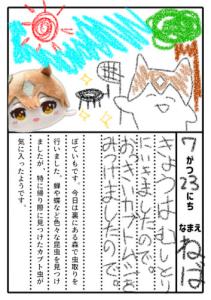 7がつ23にち
なまえ
きょうはむしとり
にいきましたので。
おおきいカブトムシを
みつけましたので。
ぼていもです 今日は裏にある森で虫取りを
行いました。蝉や蝶など色々な昆虫を見つけ
ましたが、特に帰り際に見つけたカブト虫が
気に入ったようです。